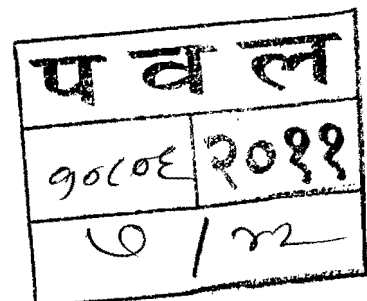 प व ल
१०८०६ २०११
७ /